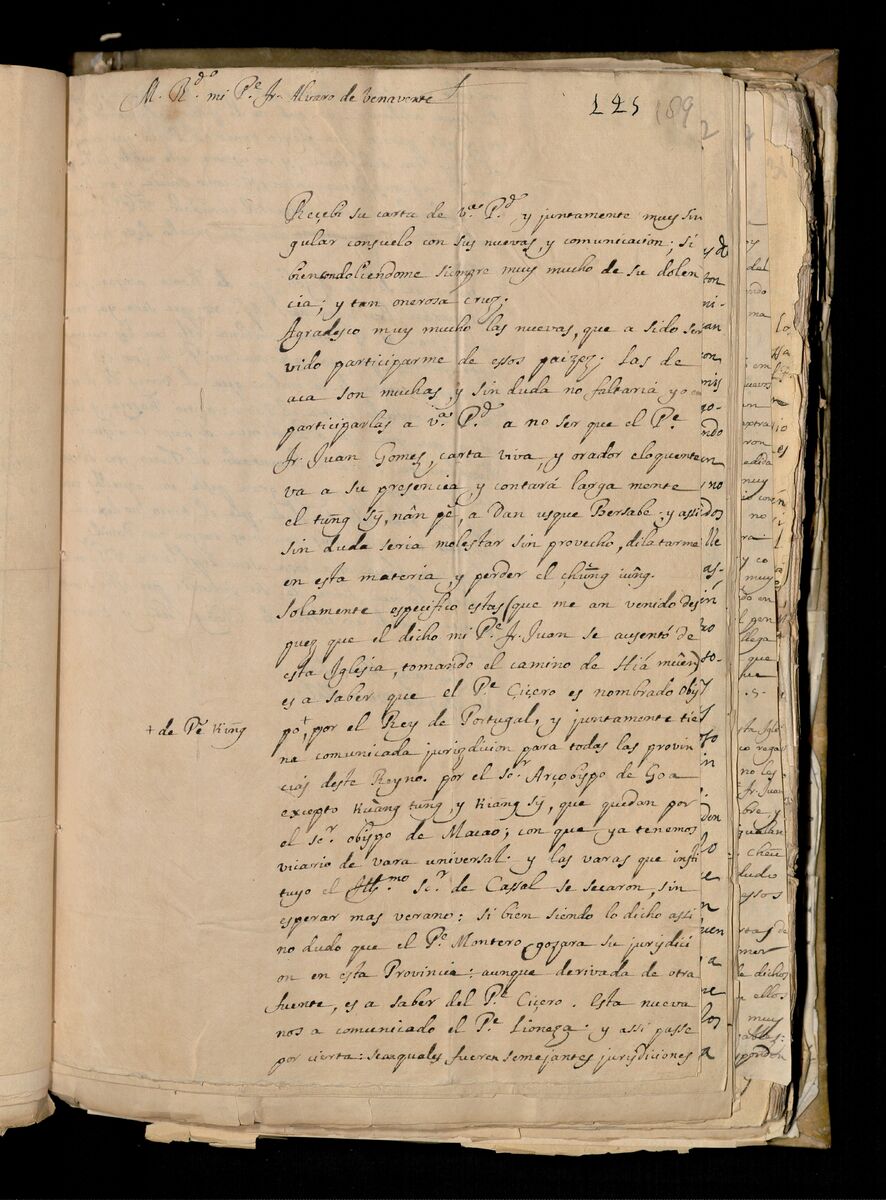 M. R.do mi P.e fr. Alvaro de Benavente
145
189
2
Reçebi su carta de v.a P.d y juntamente muy sin
gular consuelo con sus nuevas, y comunicacion; si
bien condoliendome siempre muy mucho de su dolen
cia; y tan onerosa cruz.
Agradesco muy mucho las nuevas, que a sido ser
vido participarme de essos paizez; las de
aca son muchas, y sin duda no faltaria yo en
participarlas a v.a P.d a no ser que el P.e
fr. Juan Gomes, carta viva, y orador eloquente
va a su presencia, y contará larga mente
el tung sy, nân pě, a Dan usque Bersabe; y assi
sin duda seria molestar sin provecho, dilatarme
en esta materia, y perder el chung iung.
Solamente espeçifico estas (que me an venido des
puez que el dicho mi P.e fr. Juan se ausentó de
esta Iglesia, tomando el camino de Hiá muen)
es a saber que el P.e Ciçero es nombrado obis
po+, por el Rey de Portugal, y juntamente tie
+ de Pe King
ne comunicada jurisdicion para todas las provin
cias deste Reyno. por el so.r Arçobispo de Goa
excepto Kuang tung, y Kiang sy, que quedan por
el se.r obispo de Macao; con que ya tenemos
vicario de vara universal. y las varas que insti
tuyo el Ill.mo se.r de Cassal se secaron, sin
esperar mas verano: si bien siendo lo dicho assi
no dudo que el P.e Montero gozara su jurisdici
on en esta Provincia: aunque derivada de otra
fuente, es a saber del P.e Ciçero. Esta nueva
nos a comunicado el P.e Lionega. y assi passe
por cierta: sean quales fueren semejantes jurisdiciones